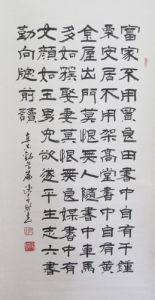 富家不用買良田書中自有千鍾
粟安居不用架高堂書中自有黃
金屋出門莫恨無人隨書中車馬
多如簇娶妻莫恨無良媒書中有
女顏如玉男兒欲遂平生志六經
勤向牕前讀